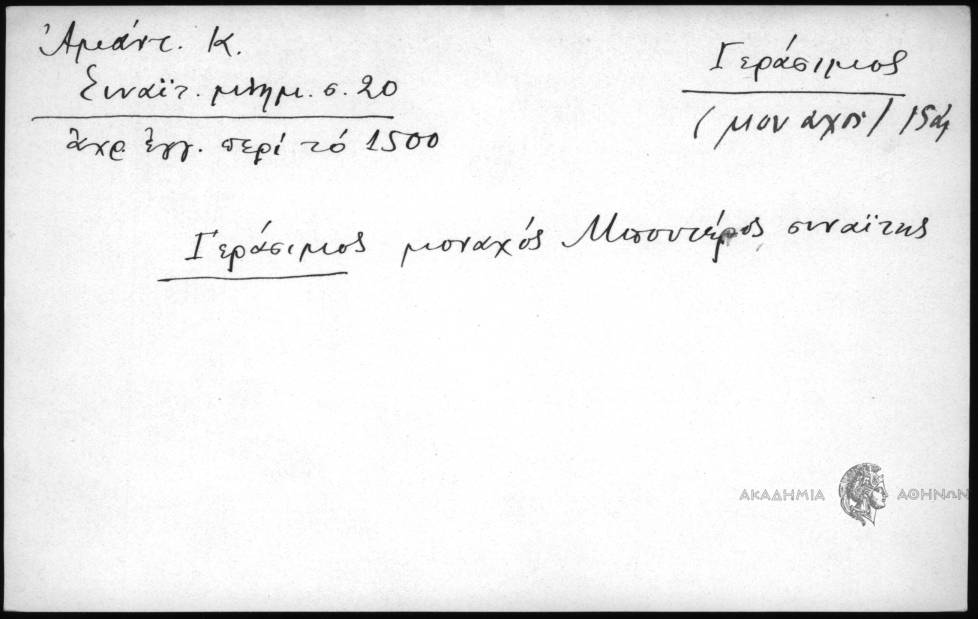 Ἀμάντ. Κ.
Σιναϊτ. μνημ. σ. 20
ἀχρ ἔγγ. περί τό 1500
Γεράσιμος
(μοναχός) 15
Γεράσιμος μοναχός Μπουτέρος σιναΐτης
ΑΚΑΔΗΜΙΑ ΑΘΗΝΩΝ